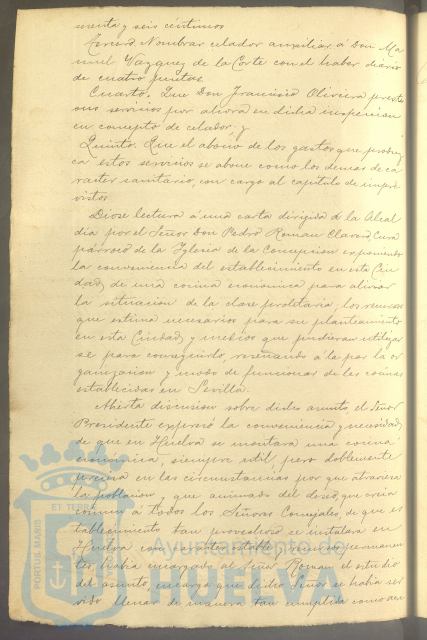 senta y seis céntimos
Tercero. Nombrar celador auxiliar á Don Ma
nuel Vazquez de la Corte con el haber diario
de cuatro pesetas.
Cuarto. Que Don Francisco Oliveira preste
sus servicios por ahora en dicha inspeccion
en concepto de celador; y
Quinto. Que el abono de los gastos que produz
ca estos servicios se abone como los demas de ca
racter sanitario, con cargo al capitulo de impre
vistos
Diose lectura á una carta dirigida á la Alcal
dia por el Señor Don Pedro Roman Clavero, Cura
párroco de la Iglesia de la Concepcion exponiendo
la conveniencia del establecimiento en esta Ciu
dad, de una cocina económica para aliviar
la situacion de la clase proletaria, los recursos
que estima necesarios para su planteamiento
en esta Ciudad y medios que pudieran utilizar
se para conseguirlo, reseñando á la par la or
ganizacion y modo de funcionar de las cocinas
establecidas en Sevilla.
Abierta discusion sobre dicho asunto, el Señor
Presidente expresó la conveniencia y necesidad,
de que en Huelva se montara una cocina
económica, siempre util, pero doblemente
precisa en las circunstancias por que atraviesa
la poblacion, y que animado del deseo, que creia
comun á todos los Señores Concejales de que es
tablecimiento tan provechoso se instalara en
Huelva con caracter estable y aun de permanen
te, habia encargado al Señor Roman el estudio
del asunto, encargo que dicho Señor se habia ser
vido llenar de manera tan cumplida como acu
PORTUS MARIS
ET TERRAE
Ayuntamiento de
HUELVA